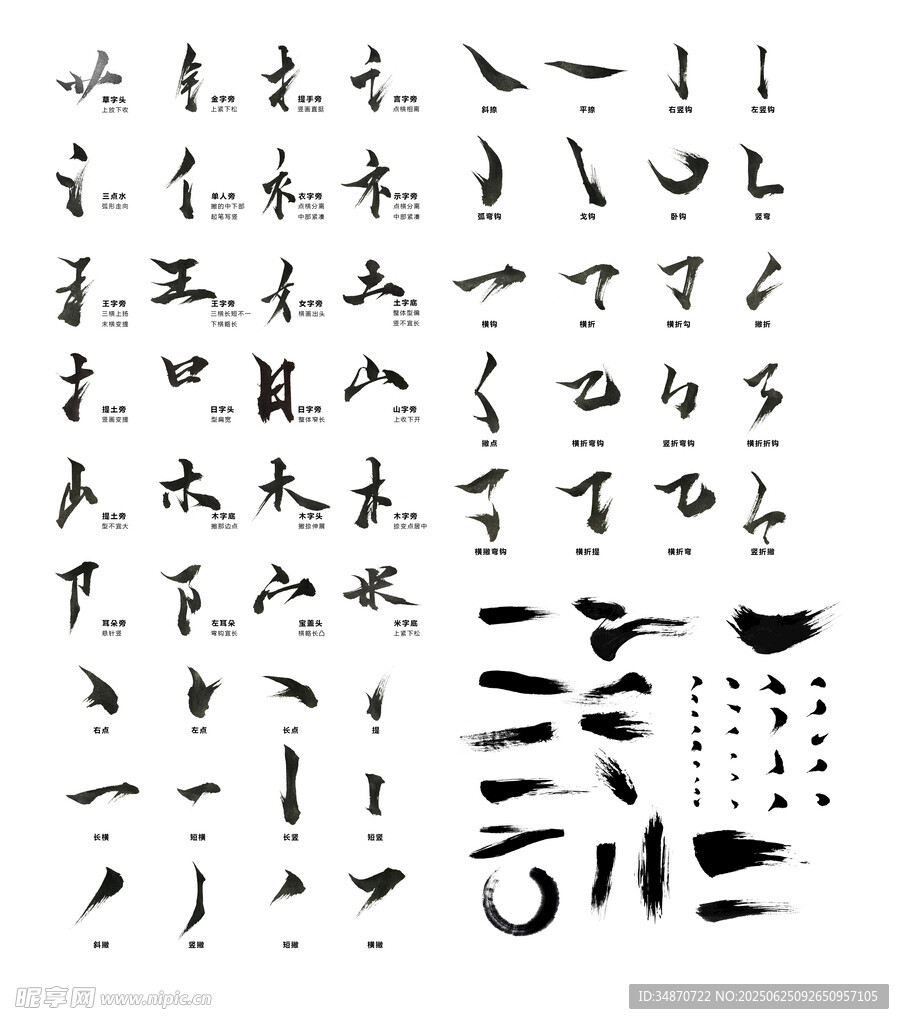 草字头
上放下收
金字旁
上紧下松
提手旁
竖画直挺
言字旁
点横相离
三点水
弧形走向
单人旁
撇的中下部
起笔写竖
衣字旁
点横分离
中部紧凑
示字旁
点横分离
中部紧凑
王字旁
三横上扬
末横变提
王字旁
三横长短不一
下横略长
女字旁
横画出头
土字底
整体型偏
竖不宜长
提土旁
竖画变提
日字头
型扁宽
日字旁
整体窄长
山字旁
上收下开
提土旁
型不宜大
木字底
撇那边点
木字头
撇捺伸展
木字旁
捺变点居中
耳朵旁
悬针竖
左耳朵
弯钩宜长
宝盖头
横略长凸
米字底
上紧下松
右点
左点
长点
提
长横
短横
长竖
短竖
斜撇
竖撇
短撇
横撇
斜捺
平捺
右竖钩
左竖钩
弧弯钩
戈钩
卧钩
竖弯
横钩
横折
横折勾
撇折
撇点
横折弯钩
竖折弯钩
横折折钩
横撇弯钩
横折提
横折弯
竖折撇
昵享网 www.nipic.cn
ID:34870722 NO:20250625092650957105